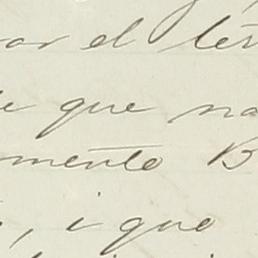 ar el tér
e que no
mento B
, i que